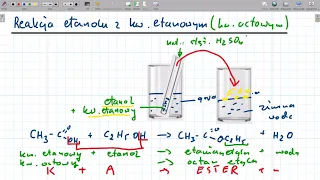 Reakcja etanolu z kw. etanowym (kw. octowym)
kat. stęż. H₂SO₄
etanol
+ kw. etanowy
zimna
woda
CH₃-C=O OH + C₂H₅OH → CH₃-C=O OC₂H₅ + H₂O
kw. etanowy + etanol → etanian etylu + woda
kw. octowy → octan etylu
K + A → ESTER + w